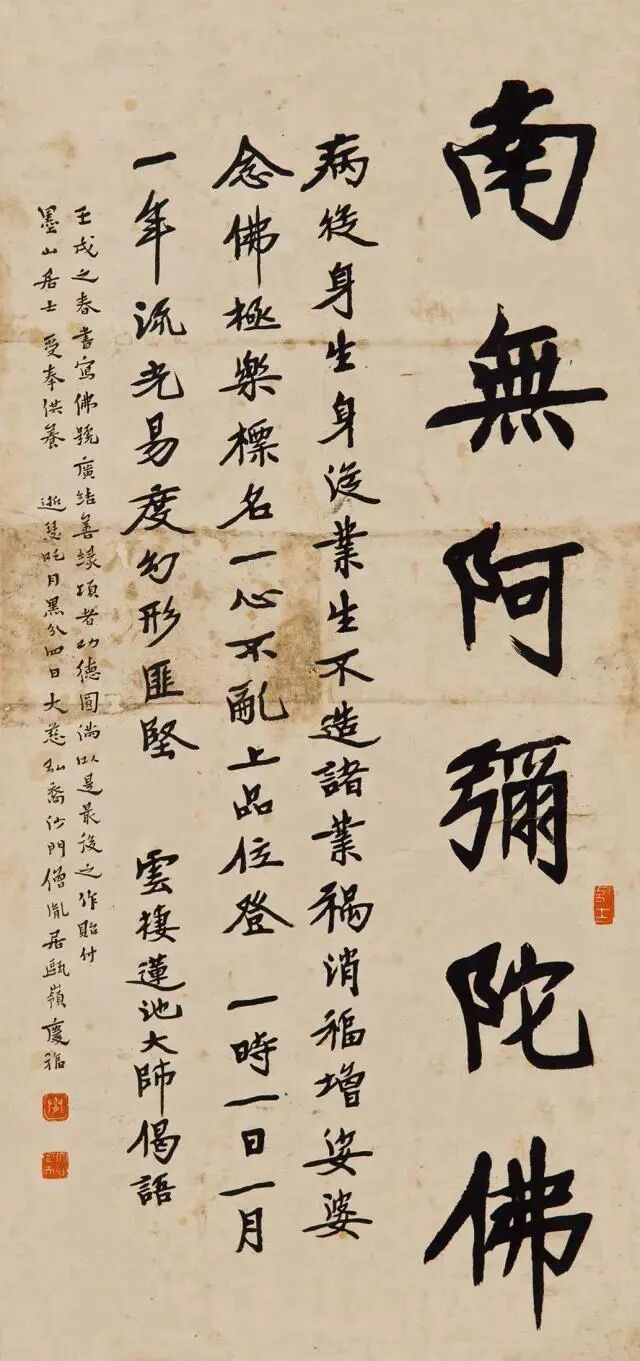 南無阿彌陀佛
病從身生身從業生不造諸業禍消福增娑婆
念佛極樂標名一心不亂上品位登 一時一日一月
一年流光易度幻形匪堅 雲棲蓮池大師偈語
壬戌之春書寫佛號廣結善緣須者功德圓滿以是最後之作貽付
墨山居士 受奉供養 逝瑟吒月黑分四日大慈弘裔沙門僧胤居甌嶺慶福